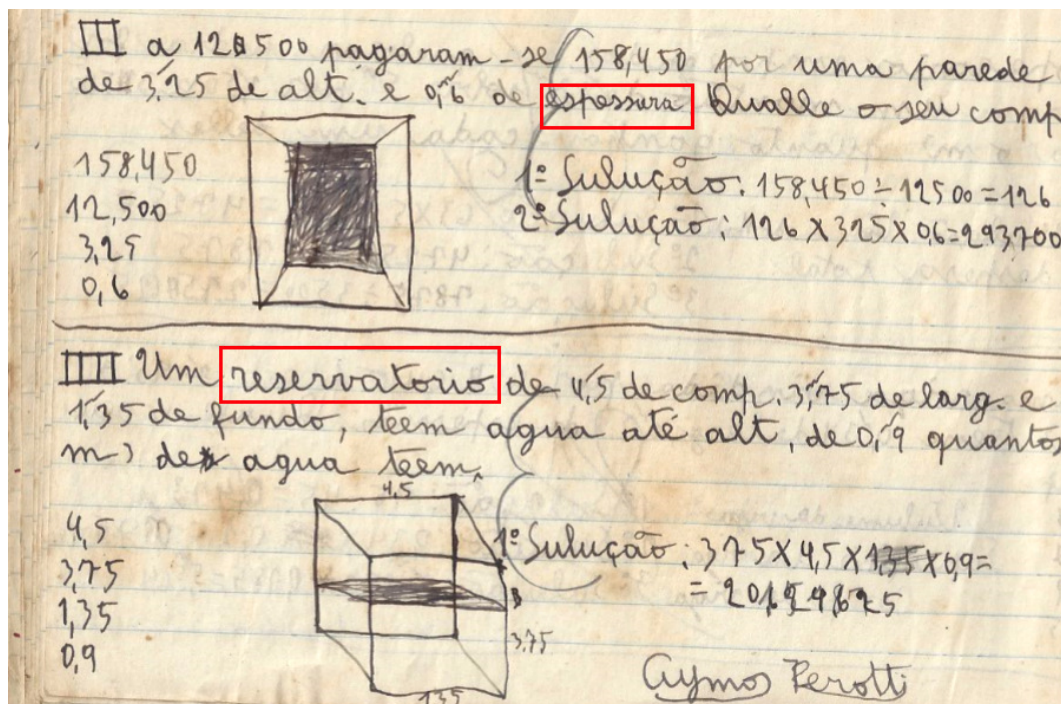 III a 12$500 pagaram-se 158,450 por uma parede
de 3,25 de alt. e 0,6 de espessura Qualle o seu comp
158,450
12,500
3,25
0,6
1º Sulução: 158,450 ÷ 12500 = 126
2º Sulução: 126 X 325 X 06 = 293,700
IIII Um reservatorio de 4,5 de comp. 3,75 de larg. e
1,35 de fundo, teem agua até alt, de 0,9 quantos
m³ de agua teem.
4,5
3,75
1,35
0,9
4,5
3.75
135
1º Sulução: 375 X 4,5 X 135 X 0,9 =
Cymos Perotti